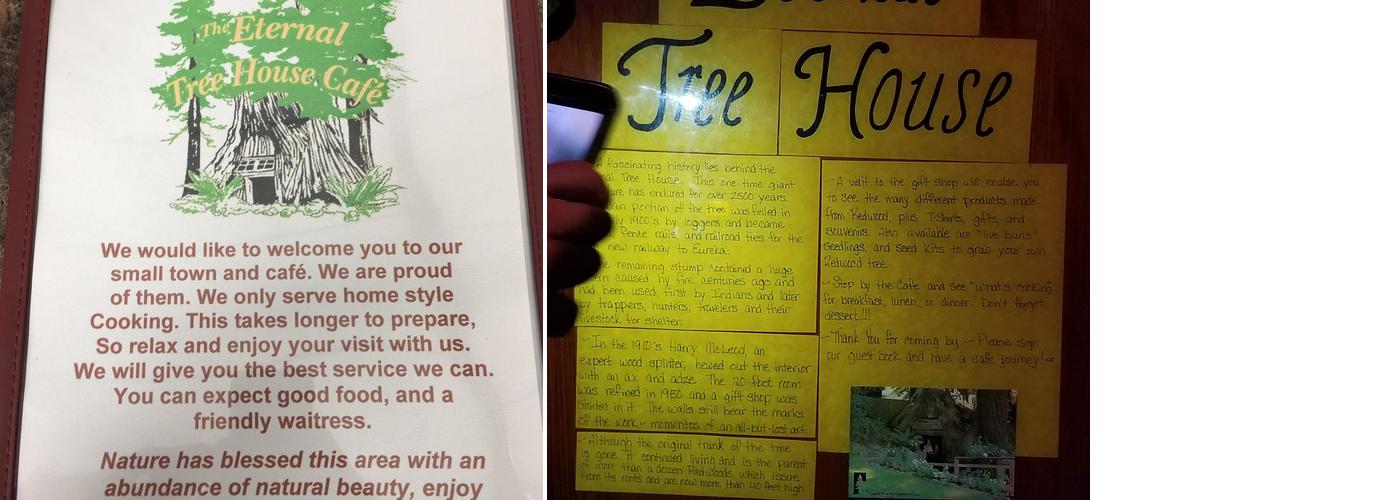 The Eternal
Tree House Café
We would like to welcome you to our
small town and café. We are proud
of them. We only serve home style
Cooking. This takes longer to prepare,
So relax and enjoy your visit with us.
We will give you the best service we can.
You can expect good food, and a
friendly waitress.
Nature has blessed this area with an
abundance of natural beauty, enjoy
Tree House
A fascinating history lies behind the
Tree House. This one-time giant
has endured for over 2500 years.
portion of the tree was felled in
1900's by loggers and became
fence rails, and railroad ties for the
new railway to Eureka.
remaining stump contained a huge
caused by fire centuries ago and
had been used, first by Indians and later
by trappers, hunters, travelers and their
livestock for shelter.
~In the 1910's Harry McLeod, an
expert wood splitter, hewed out the interior
with an ax and adze. The 20-foot room
was refined in 1950 and a gift shop was
started in it. The walls still bear the marks
of the work~ momentos of an all-but-lost art.
~Although the original trunk of the tree
is gone it continued living and is the parent
of more than a dozen Redwoods, which issue
from its roots and are now more than 40 feet high
~A visit to the gift shop will enable you
to see the many different products made
from Redwood, plus T-Shirts, gifts, and
souvenirs. Also available are "live burls"
seedlings, and seed kits to grow your own
Redwood tree.
~Stop by the Cafe and see "what's cooking"
for breakfast, lunch, or dinner! Don't forget
dessert!!!
~Thank You for coming by ~ Please sign
our guest book and have a safe journey!